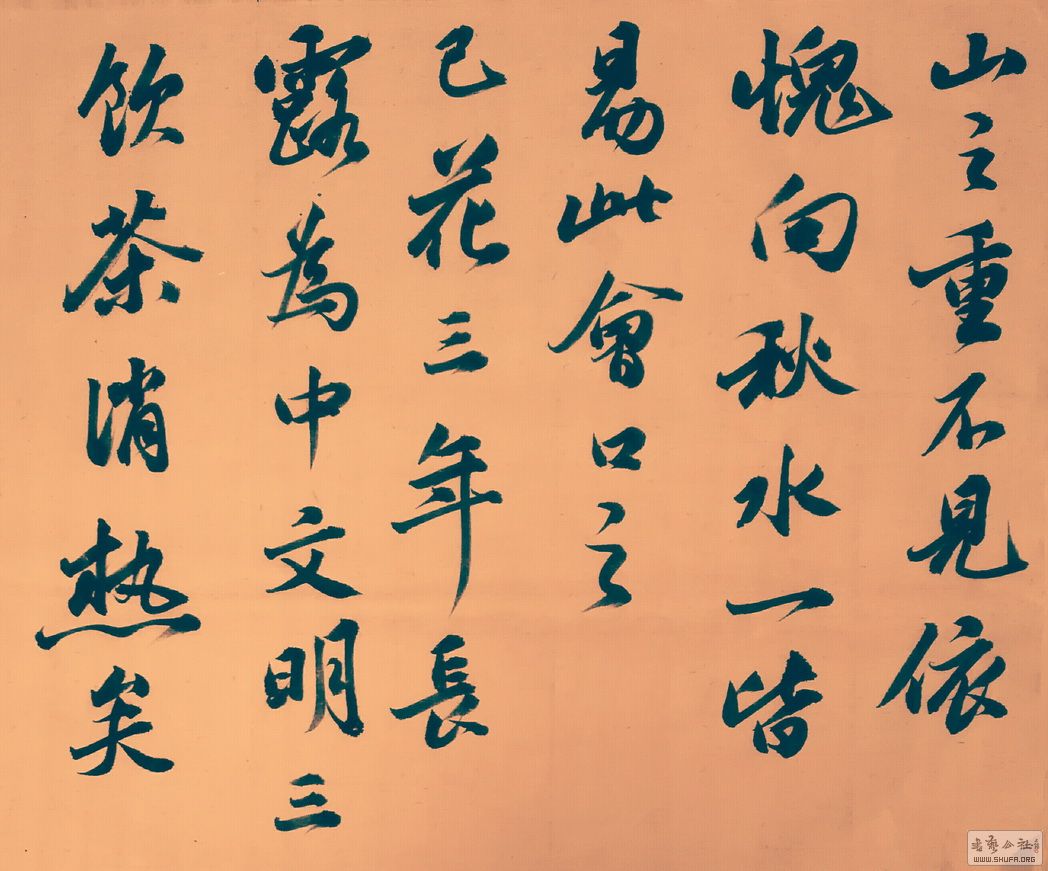 山之重不見依
愧向秋水一皆
易此會口之
已花三年長
露為中文明三
飲茶消熱矣
書藝公社
WWW.SHUFA.ORG